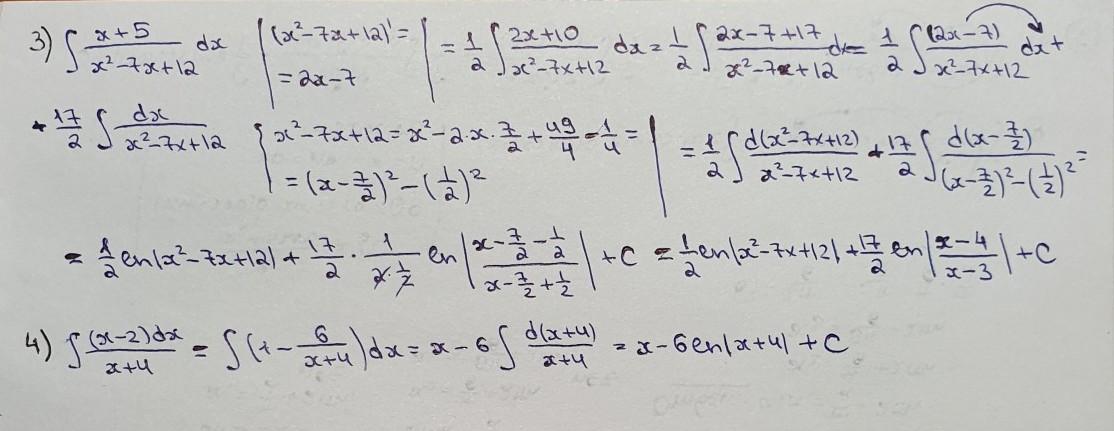 3) ∫ (x+5)/(x²-7x+12) dx | (x²-7x+12)' = 2x-7 | = 1/2 ∫ (2x+10)/(x²-7x+12) dx = 1/2 ∫ (2x-7+17)/(x²-7x+12) dx = 1/2 ∫ (2x-7)/(x²-7x+12) dx +
+ 17/2 ∫ dx/(x²-7x+12) { x²-7x+12 = x²-2·x·7/2 + 49/4 - 1/4 = = (x-7/2)² - (1/2)² | = 1/2 ∫ d(x²-7x+12)/(x²-7x+12) + 17/2 ∫ d(x-7/2)/((x-7/2)²-(1/2)²) =
= 1/2 ln|x²-7x+12| + 17/2 · 1/(2·1/2) ln|(x-7/2-1/2)/(x-7/2+1/2)| + C = 1/2 ln|x²-7x+12| + 17/2 ln|(x-4)/(x-3)| + C
4) ∫ (x-2)dx/(x+4) = ∫ (1 - 6/(x+4)) dx = x - 6 ∫ d(x+4)/(x+4) = x - 6 ln|x+4| + C